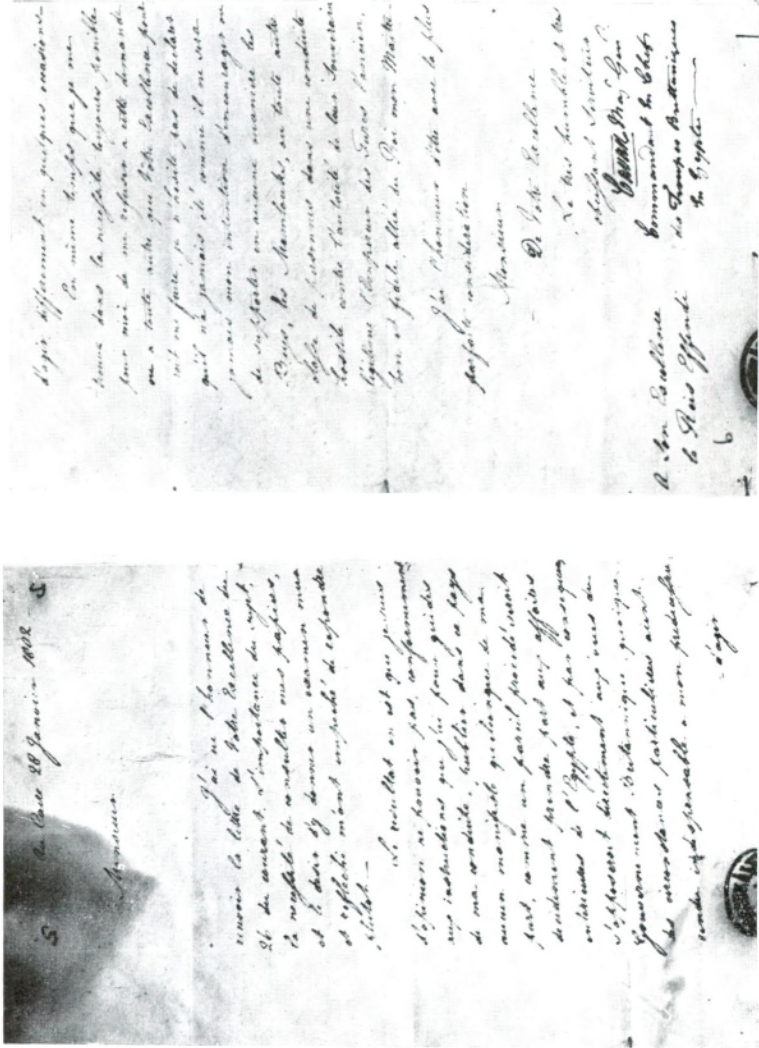 Au Caire 28 Janvier 1802
Monsieur
J'ai eu l'honneur de
recevoir la lettre de Votre Excellence du
26 du courant. L'importance du sujet,
la necessité de consulter mes papiers,
et le desir d'y donner un examen mur
et reflechi m'ont empeché de repondre
plutot —
Le resultat en est que je suis
d'opinion ne pouvoir pas, conformement
aux instructions que j'ai pour guides
de ma conduite, publier dans ce pays
aucun manifeste quelconque de ma
part, comme un pareil procédé seroit
decidement prendre part aux affaires
interieures de l'Egypte, et par consequent
s'opposeroit directement aux vues du
Gouvernement Britannique, quoique
des circonstances particulieres aient
rendu indispensable a mon predecesseur
d'agir
d'agir differement en quelques occasions
En même temps que je me
trouve dans la necessité toujours penible
pour moi de me refuser a cette demande
ou a toute autre que Votre Excellence pour
roit me faire, je n'hesite pas de declarer
qu'il n'a jamais été comme il ne sera
jamais mon intention d'encourager ou
de supporter en aucune maniere les
Beys, les Mamlouks, ou toute autre
classe de personnes dans une conduite
hostile contre l'autorité de leur Souverain
legitime l'Empereur des Turcs l'ancien,
bon et fidele allié du Roi mon Maitre
J'ai l'honneur d'etre avec la plus
parfaite consideration
Monsieur
De Votre Excellence
Le tres humble et tres
obeissant Serviteur
Maj. Gen.
Commandant En Chef
des Troupes Britanniques
En Egypte
A Son Excellence
le Reis Effendi
6